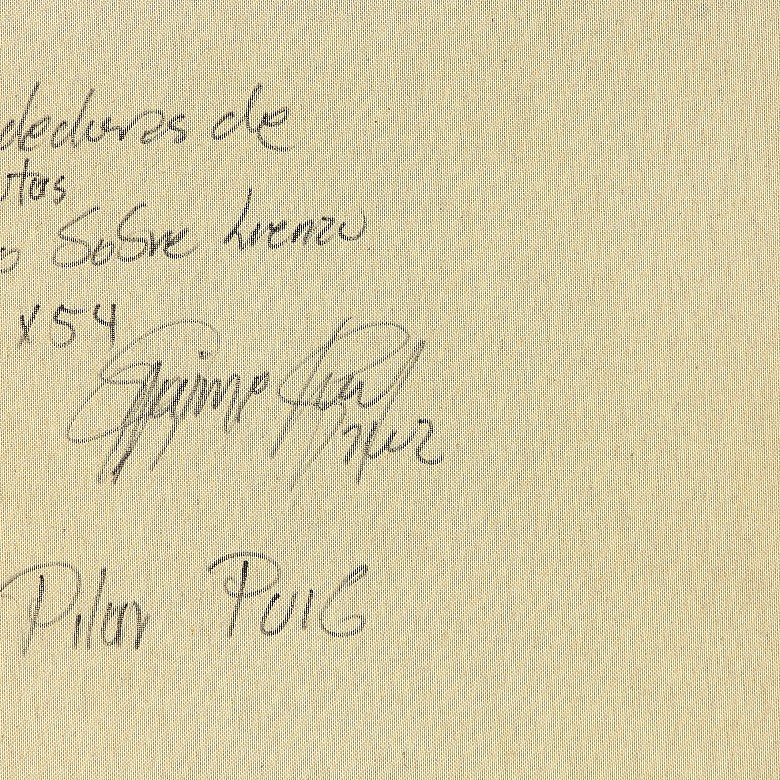 dedoras de
utas
o Sobre Lienzo
x54
Pilar Puig